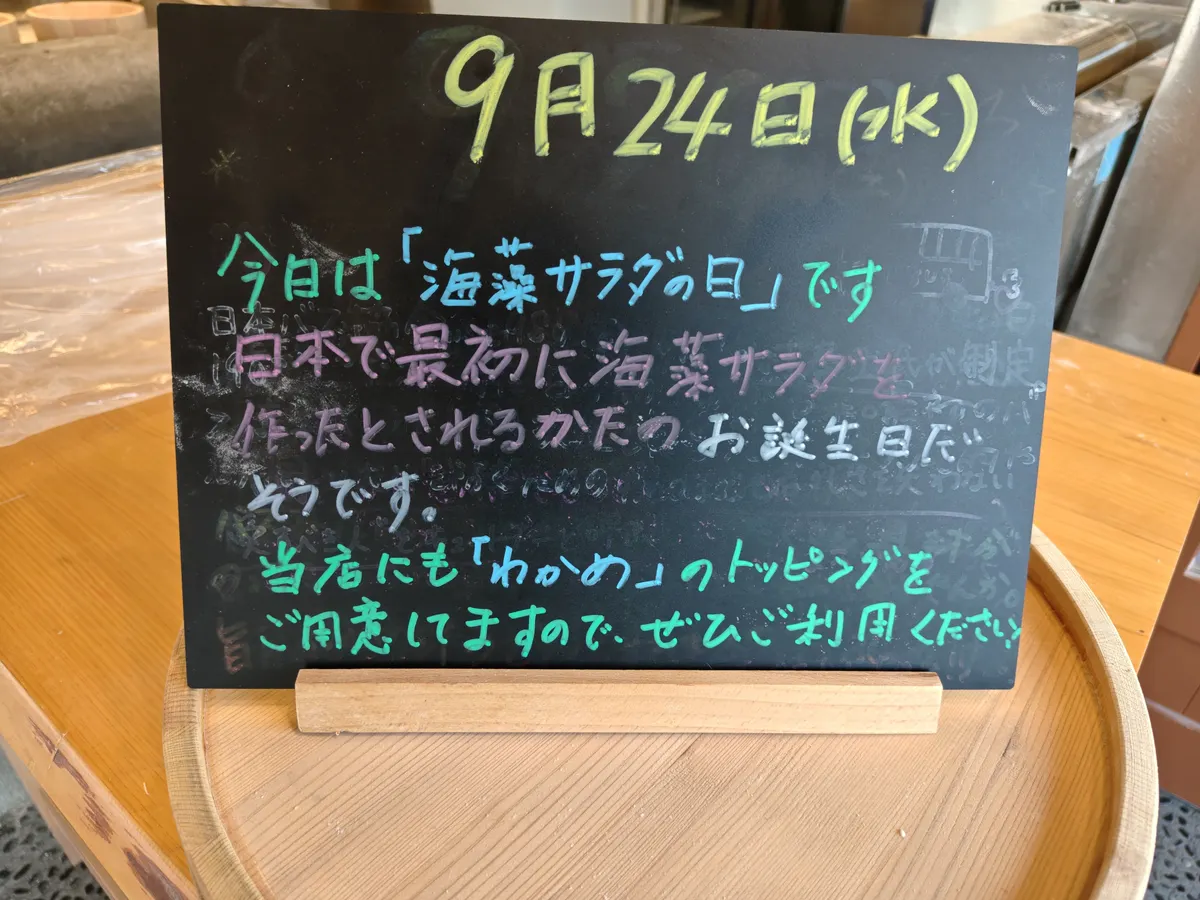 9月24日(水)
今日は「海藻サラダの日」です
日本で最初に海藻サラダを
作ったとされるかたのお誕生日だ
そうです。
当店にも「わかめ」のトッピングを
ご用意してますので、ぜひご利用ください